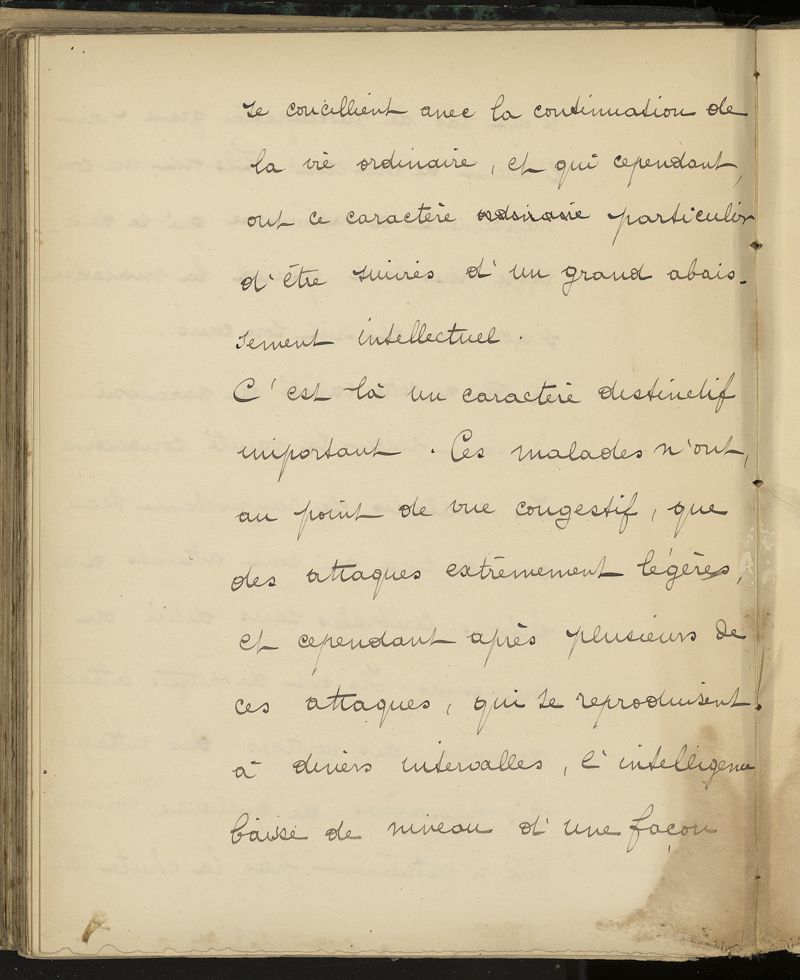 se concillient avec la continuation de
la vie ordinaire, et qui cependant,
ont ce caractère ordinaire particulier
d'être suivies d'un grand abais-
sement intellectuel.
C'est là un caractère distinctif
important. Ces malades n'ont,
au point de vue congestif, que
des attaques extrêmement légères,
et cependant après plusieurs de
ces attaques, qui se reproduisent
à divers intervalles, l'intelligence
baisse de niveau d'une façon